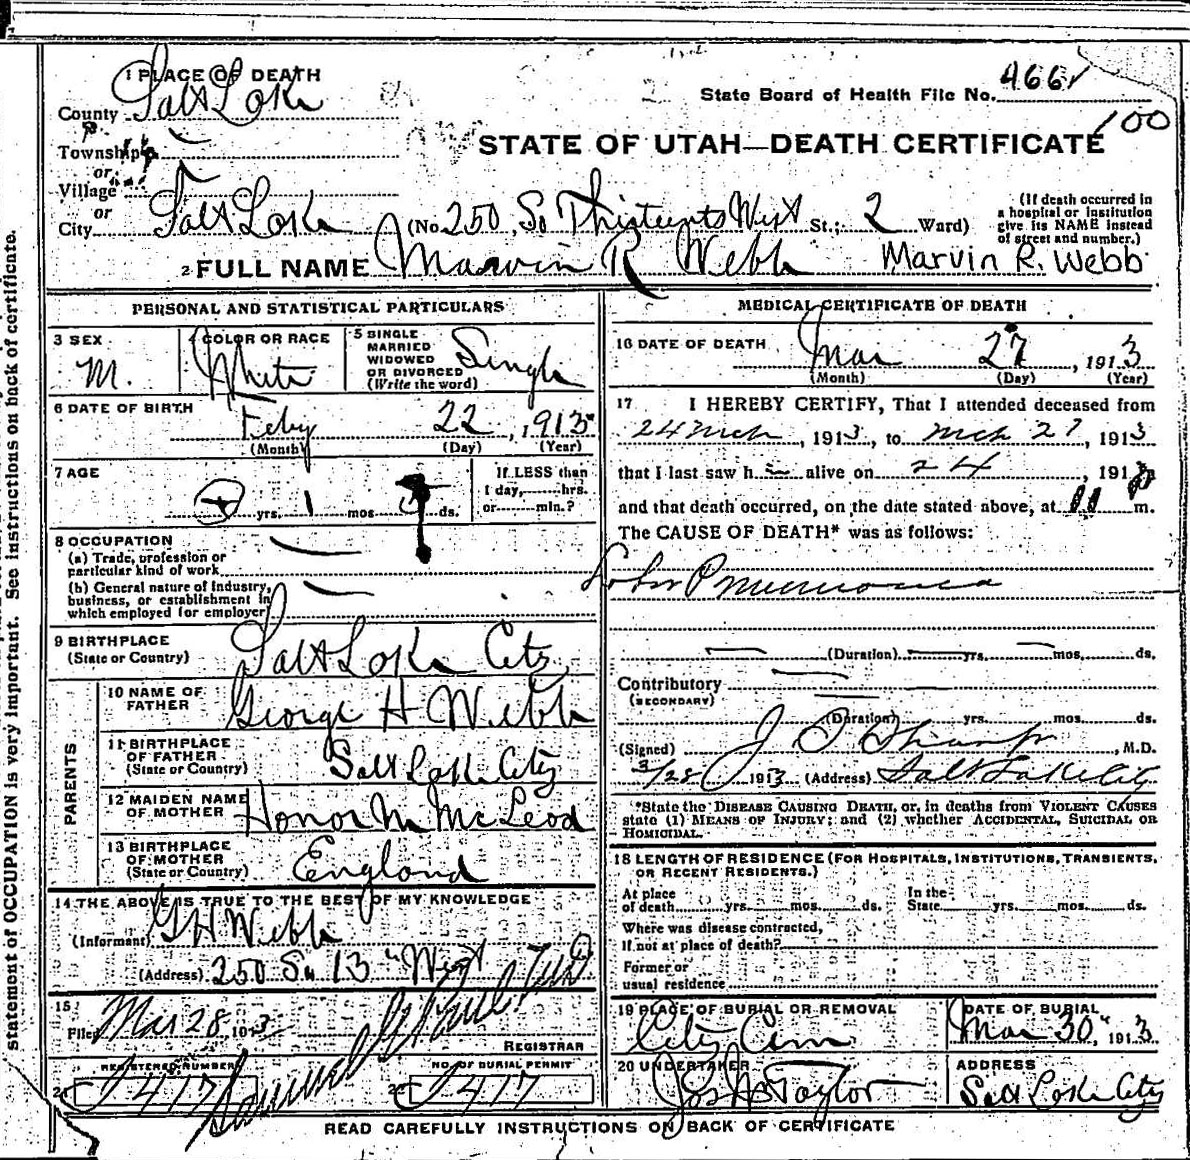 1 PLACE OF DEATH
County Salt Lake
State Board of Health File No. 466
100
STATE OF UTAH—DEATH CERTIFICATE
Township
or
Village
or
City Salt Lake (No. 250 So Thirteenth West St.; 2 Ward)
(If death occurred in a hospital or institution give its NAME instead of street and number.)
2 FULL NAME Marvin R Webb Marvin R. Webb
PERSONAL AND STATISTICAL PARTICULARS
3 SEX M.
4 COLOR OR RACE White
5 SINGLE MARRIED WIDOWED OR DIVORCED (Write the word) Single
6 DATE OF BIRTH Feby 22, 1913
(Month) (Day) (Year)
7 AGE
yrs. 1 mos. ds.
If LESS than 1 day, hrs. or min.?
8 OCCUPATION
(a) Trade, profession or particular kind of work
(b) General nature of industry, business, or establishment in which employed (or employer)
9 BIRTHPLACE (State or Country) Salt Lake City
PARENTS
10 NAME OF FATHER George H Webb
11 BIRTHPLACE OF FATHER (State or Country) Salt Lake City
12 MAIDEN NAME OF MOTHER Honor M McLeod
13 BIRTHPLACE OF MOTHER (State or Country) England
14 THE ABOVE IS TRUE TO THE BEST OF MY KNOWLEDGE
(Informant) G H Webb
(Address) 250 So 13" West
15
Filed Mar 28, 1913
REGISTRAR
REGISTERED NUMBER
NO. OF BURIAL PERMIT
MEDICAL CERTIFICATE OF DEATH
16 DATE OF DEATH Mar 27, 1913
(Month) (Day) (Year)
17 I HEREBY CERTIFY, That I attended deceased from
24 Mch, 1913, to Mch 27, 1913
that I last saw h alive on 24, 191
and that death occurred, on the date stated above, at 11 m.
The CAUSE OF DEATH* was as follows:
Lobar Pneumonia
(Duration) yrs. mos. ds.
Contributory
(SECONDARY)
(Duration) yrs. mos. ds.
(Signed) J. , M.D.
3/28, 1913 (Address) Salt Lake City
*State the DISEASE CAUSING DEATH, or, in deaths from VIOLENT CAUSES state (1) MEANS OF INJURY; and (2) whether ACCIDENTAL, SUICIDAL OR HOMICIDAL.
18 LENGTH OF RESIDENCE (FOR HOSPITALS, INSTITUTIONS, TRANSIENTS, OR RECENT RESIDENTS.)
At place of death yrs. mos. ds. In the State yrs. mos. ds.
Where was disease contracted,
If not at place of death?
Former or usual residence
19 PLACE OF BURIAL OR REMOVAL City Cem
DATE OF BURIAL Mar 30", 1913
20 UNDERTAKER Jos. Taylor
ADDRESS Salt Lake City
READ CAREFULLY INSTRUCTIONS ON BACK OF CERTIFICATE
statement of OCCUPATION is very important. See instructions on back of certificate.